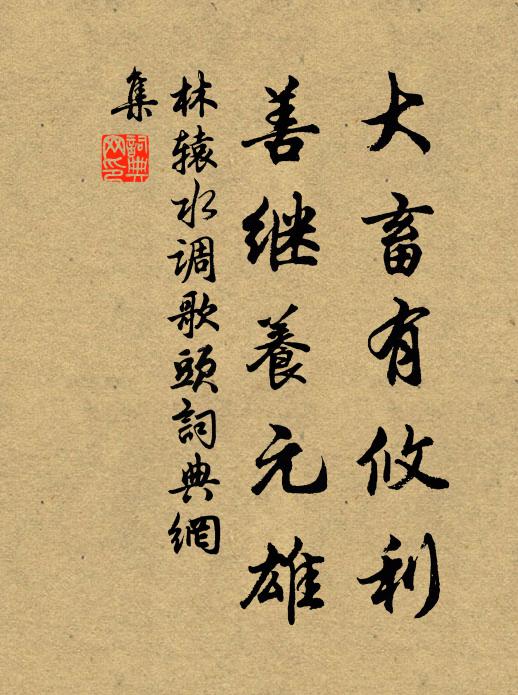 大畜有攸利
善继養元雄
林辕水调歌頭詞典網
集
詞典
网印